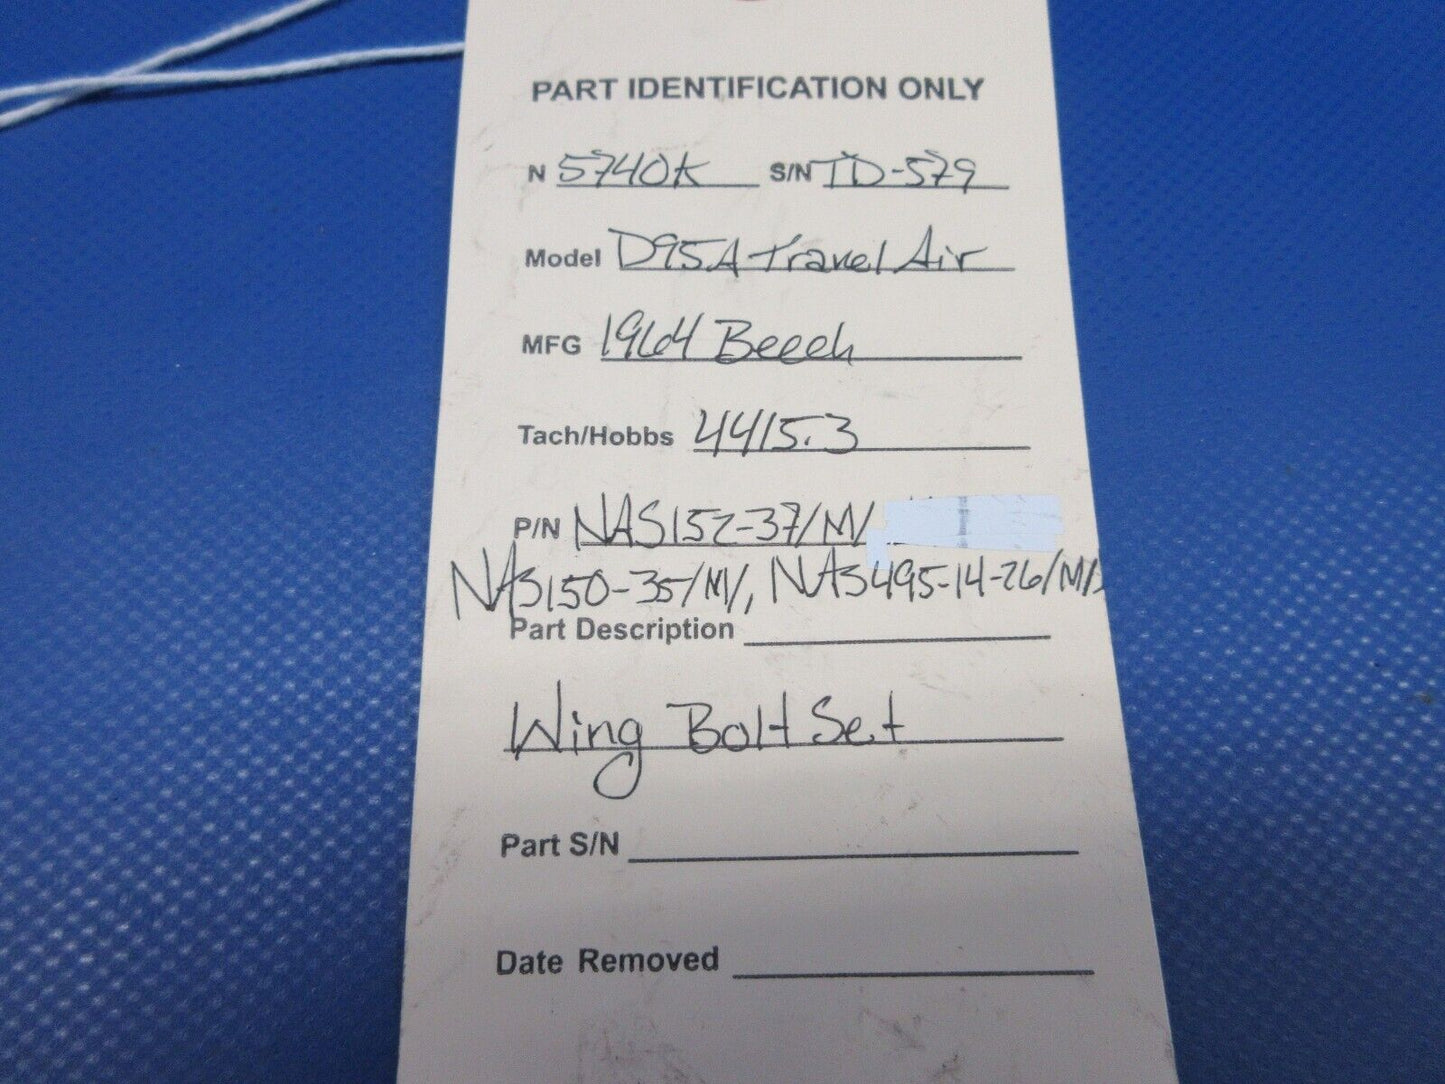 PART IDENTIFICATION ONLY
N 5740K S/N TD-579
Model D95A Travel Air
MFG 1964 Beech
Tach/Hobbs 4415.3
P/N NAS152-37/M/
NAS150-35/M/, NAS495-14-26/M/
Part Description
Wing Bolt Set
Part S/N
Date Removed